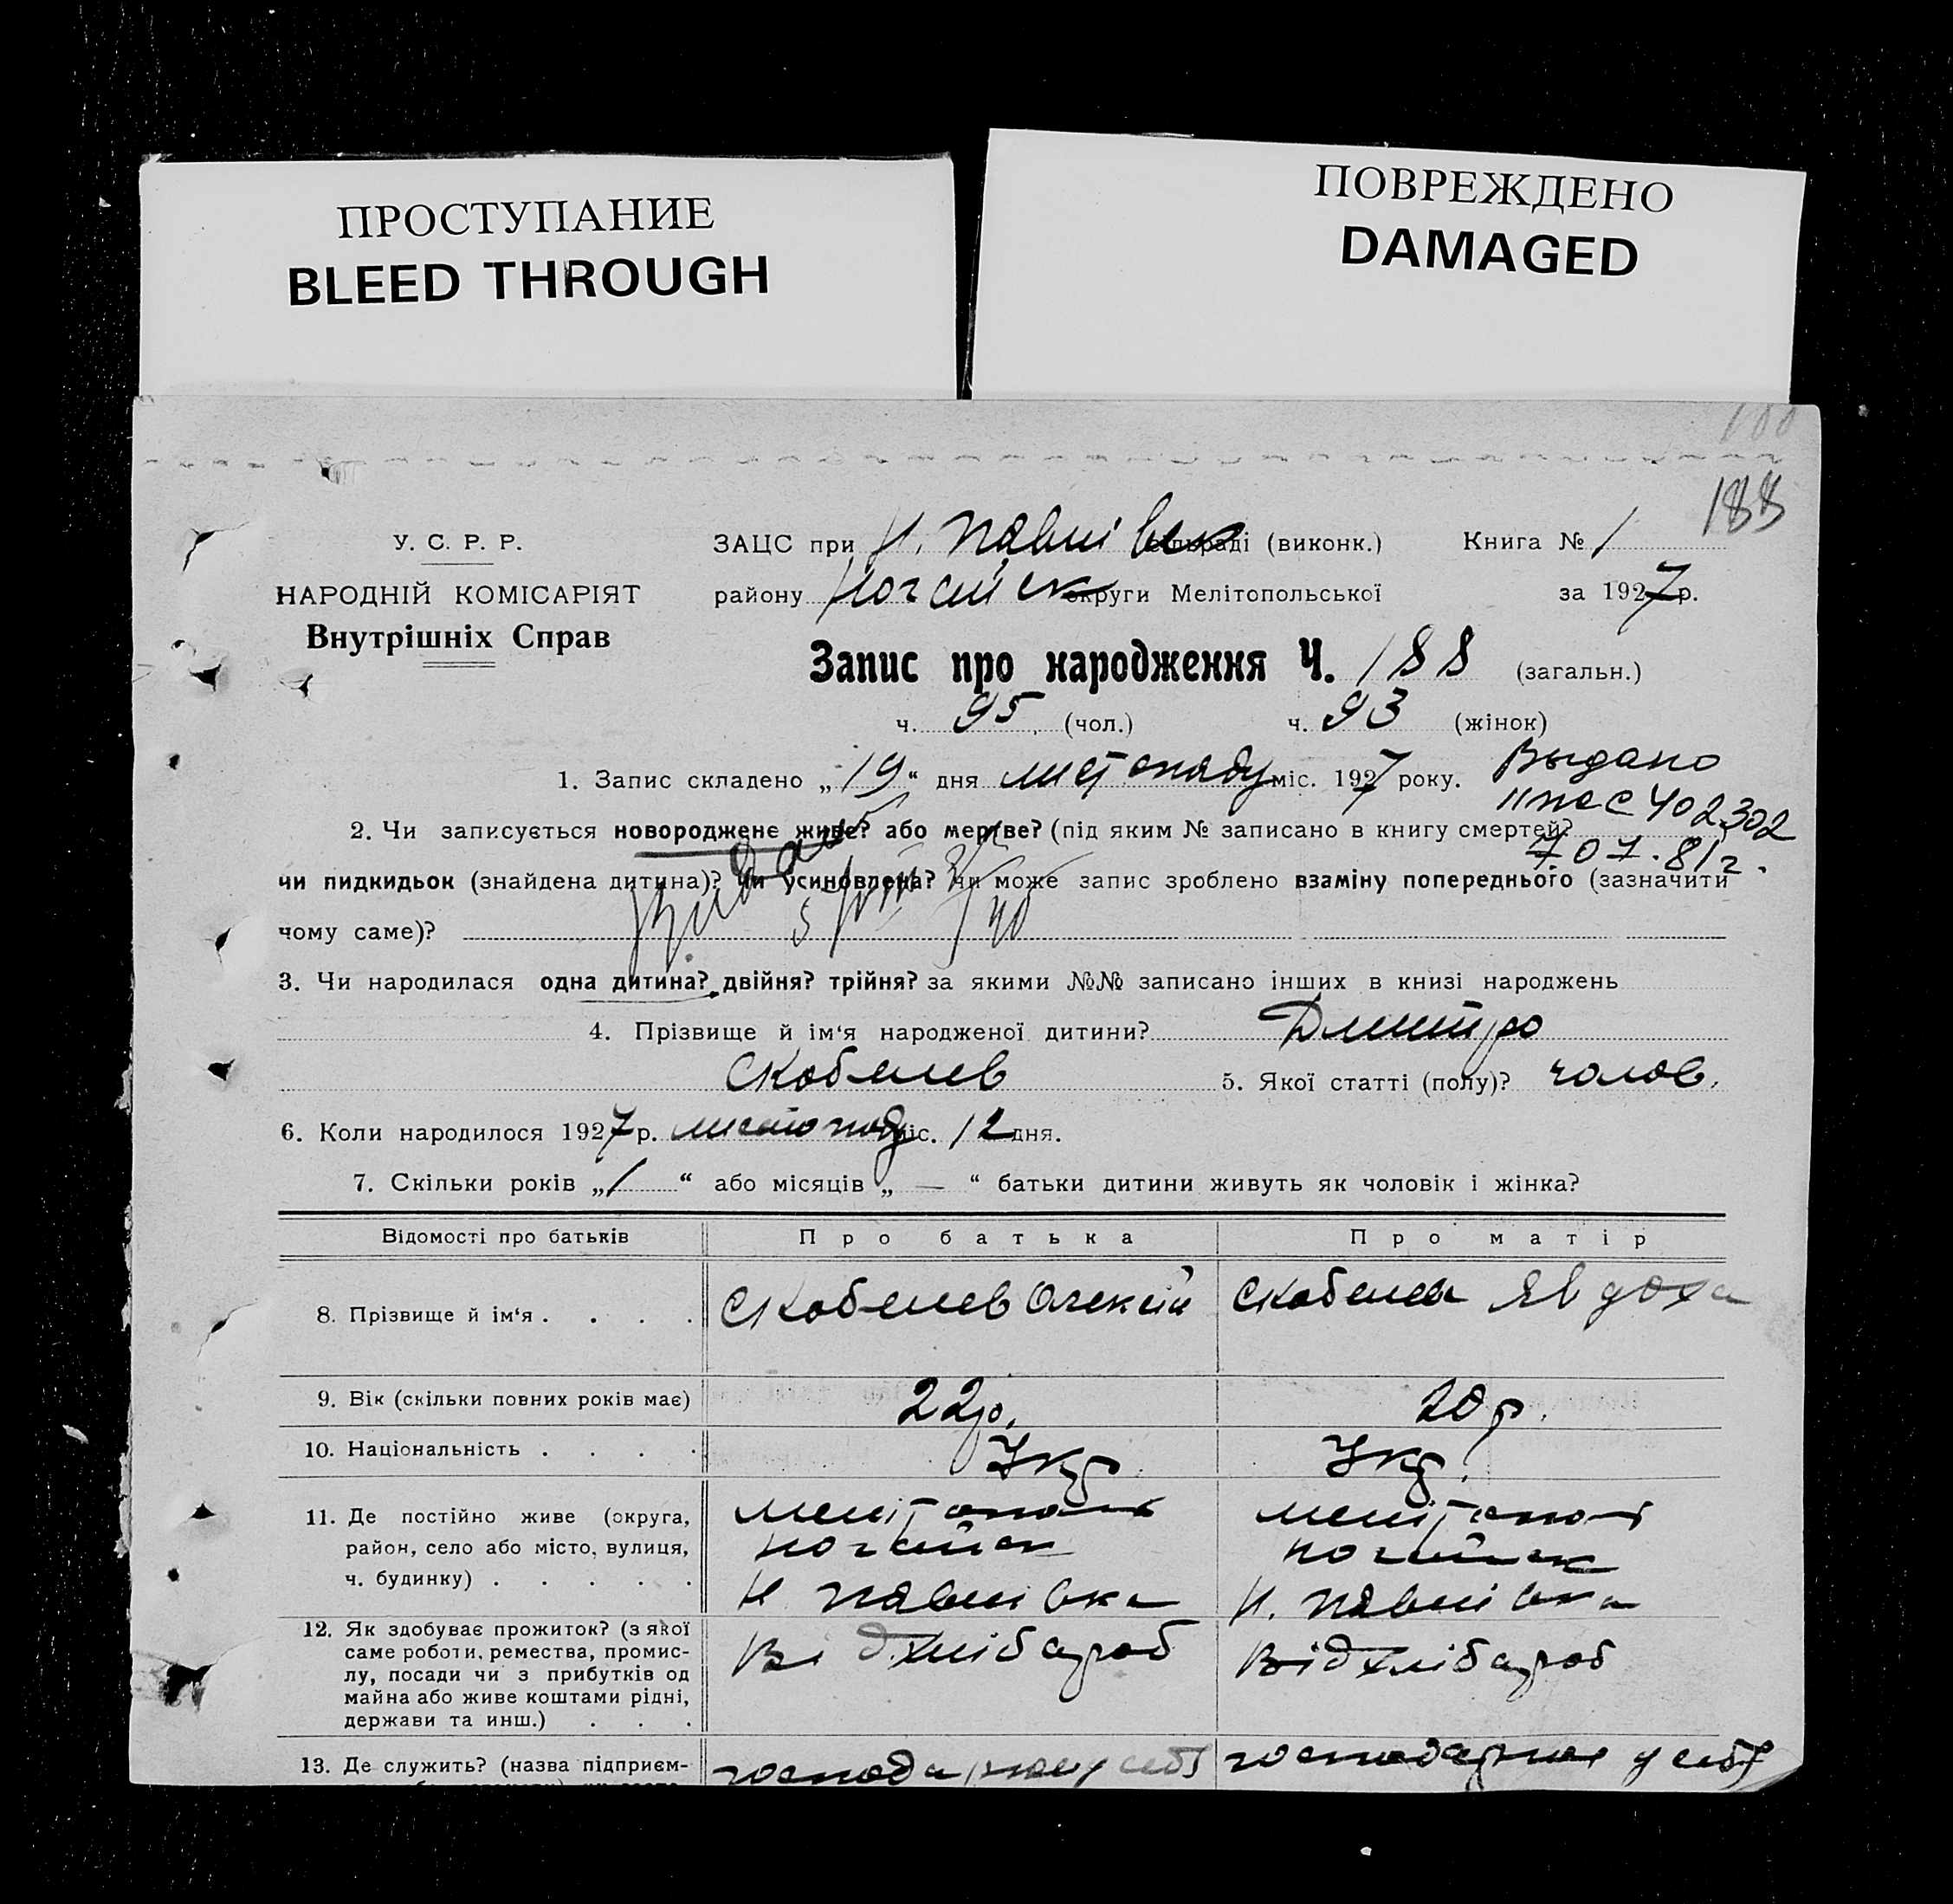 ПРОСТУПАНИЕ
BLEED THROUGH
ПОВРЕЖДЕНО
DAMAGED
188
У. С. Р. Р.
НАРОДНІЙ КОМІСАРІЯТ
Внутрішніх Справ
ЗАЦС при Н. Павлівск сільраді (виконк.) Книга № 1
району Ногайск округи Мелітопольської за 1927 р.
Запис про народження Ч. 188 (загальн.)
ч. 95 (чол.) ч. 93 (жінок)
1. Запис складено „19“ дня листопаду міс. 1927 року.
Выдано
402302
7.07.81г.
2. Чи записується новороджене живе? або мертве? (під яким № записано в книгу смертей?
чи пидкидьок (знайдена дитина)? чи усиновлена? чи може запис зроблено взаміну попереднього (зазначити
чому саме)?
3. Чи народилася одна дитина? двійня? трійня? за якими №№ записано інших в книзі народжень
4. Прізвище й ім‘я народженої дитини? Дмитро
Скобелев 5. Якої статті (полу)? чолов.
6. Коли народилося 1927 р. листопаду міс. 12 дня.
7. Скільки років „1“ або місяців „—“ батьки дитини живуть як чоловік і жінка?
Відомості про батьків Про батька Про матір
8. Прізвище й ім‘я . . . . Скобелев Олексій Скобелева Явдоха
9. Вік (скільки повних років має) 22 р. 20 р.
10. Національність . . . . Укр. Укр.
11. Де постійно живе (округа, Мелітополь Мелітополь
район, село або місто, вулиця, Ногайск Ногайск
ч. будинку) . . . . . Н. Павлівка Н. Павлівка
12. Як здобуває прожиток? (з якої
саме роботи, ремества, промис- Від хлібароб Від хлібароб
лу, посади чи з прибутків од
майна або живе коштами рідні,
держави та инш.) . . .
13. Де служить? (назва підприєм- у себе у себе